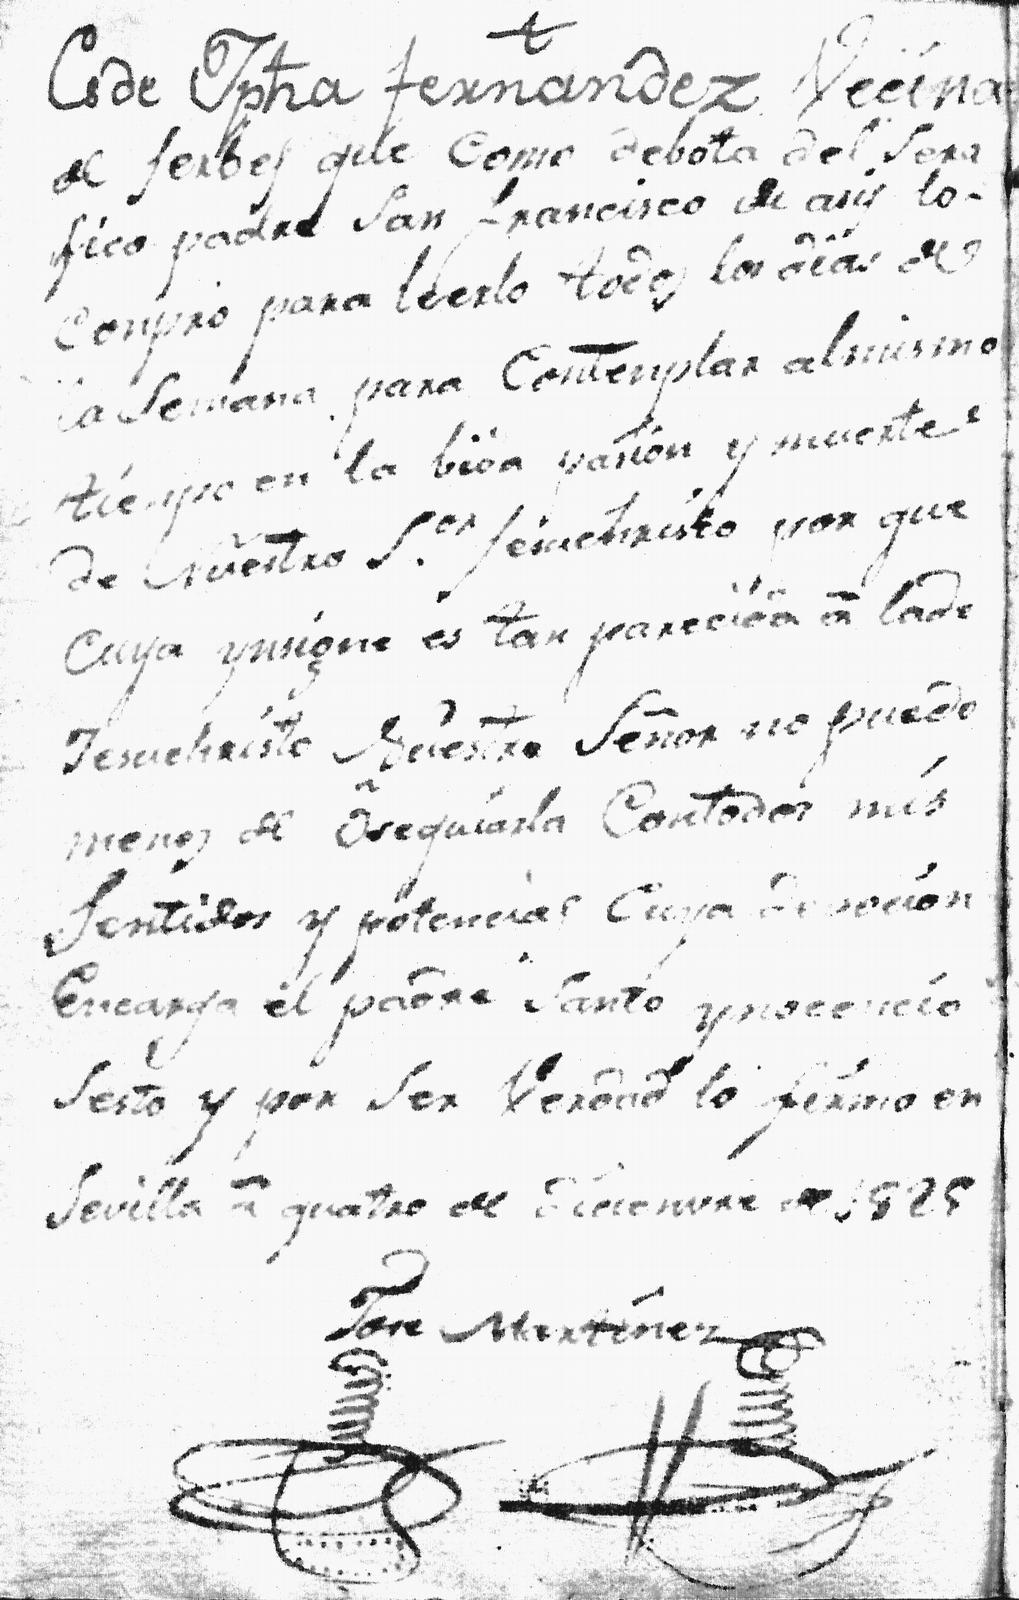 Es de Jpha fernandez Vecina
de serbes que como debota del Sera
fico padre San francisco de asis lo
Conpro para leerlo todos los dias de
la Semana para Contenplar almismo
tienpo en la bida pasion y muerte
de Nuestro S.or Jesuchristo por que
Cuya ynsigne es tan parecida a la de
Jesuchristo Nuestro Señor no puedo
menos de osequiarla Contodos mis
Sentidos y potencias Cuya devocion
Encarga el padre Santo ynocencio
Sesto y por ser Verdad lo firmo en
Sevilla a quatro de dicienvre de 1825
Jose Martinez